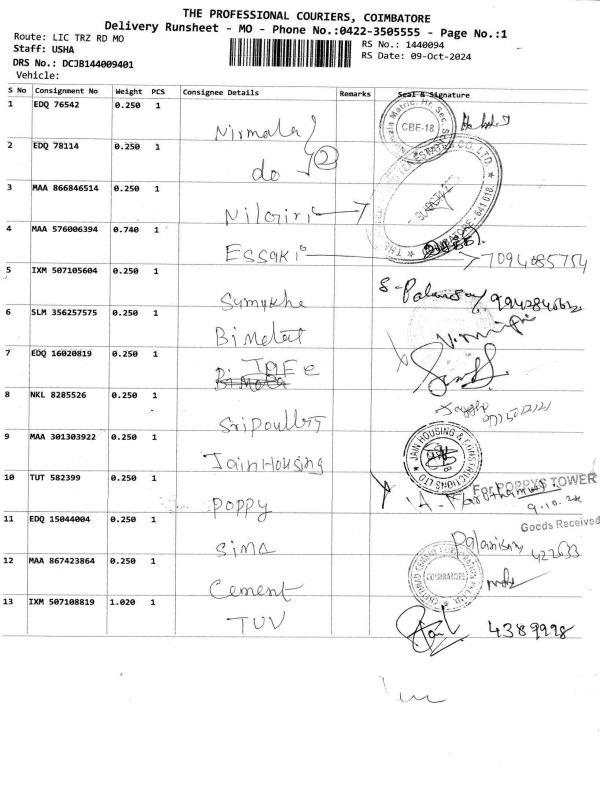 THE PROFESSIONAL COURIERS, COIMBATORE
Delivery Runsheet - MO - Phone No.:0422-3505555 - Page No.:1
Route: LIC TRZ RD MO
Staff: USHA
DRS No.: DCJB144009401
Vehicle:
RS No.: 1440094
RS Date: 09-Oct-2024
S No Consignment No Weight PCS Consignee Details Remarks Seal & Signature
1 EDQ 76542 0.250 1 Nirmala
CBE-18
2 EDQ 78114 0.250 1 do 2
3 MAA 866846514 0.250 1 Nilgiris
4 MAA 576006394 0.740 1 Essaki 7094085754
5 IXM 507105604 0.250 1
6 SLM 356257575 0.250 1
7 EDQ 16020819 0.250 1
8 NKL 8285526 0.250 1
9 MAA 301303922 0.250 1 Jain Housing
JAIN HOUSING & CONSTRUCTIONS LTD
10 TUT 582399 0.250 1 Poppy
For POPPYS TOWER
9.10.24
Goods Received
11 EDQ 15044004 0.250 1 Sima
422633
12 MAA 867423864 0.250 1 Cement
COIMBATORE
13 IXM 507108819 1.020 1 TUV
4389998